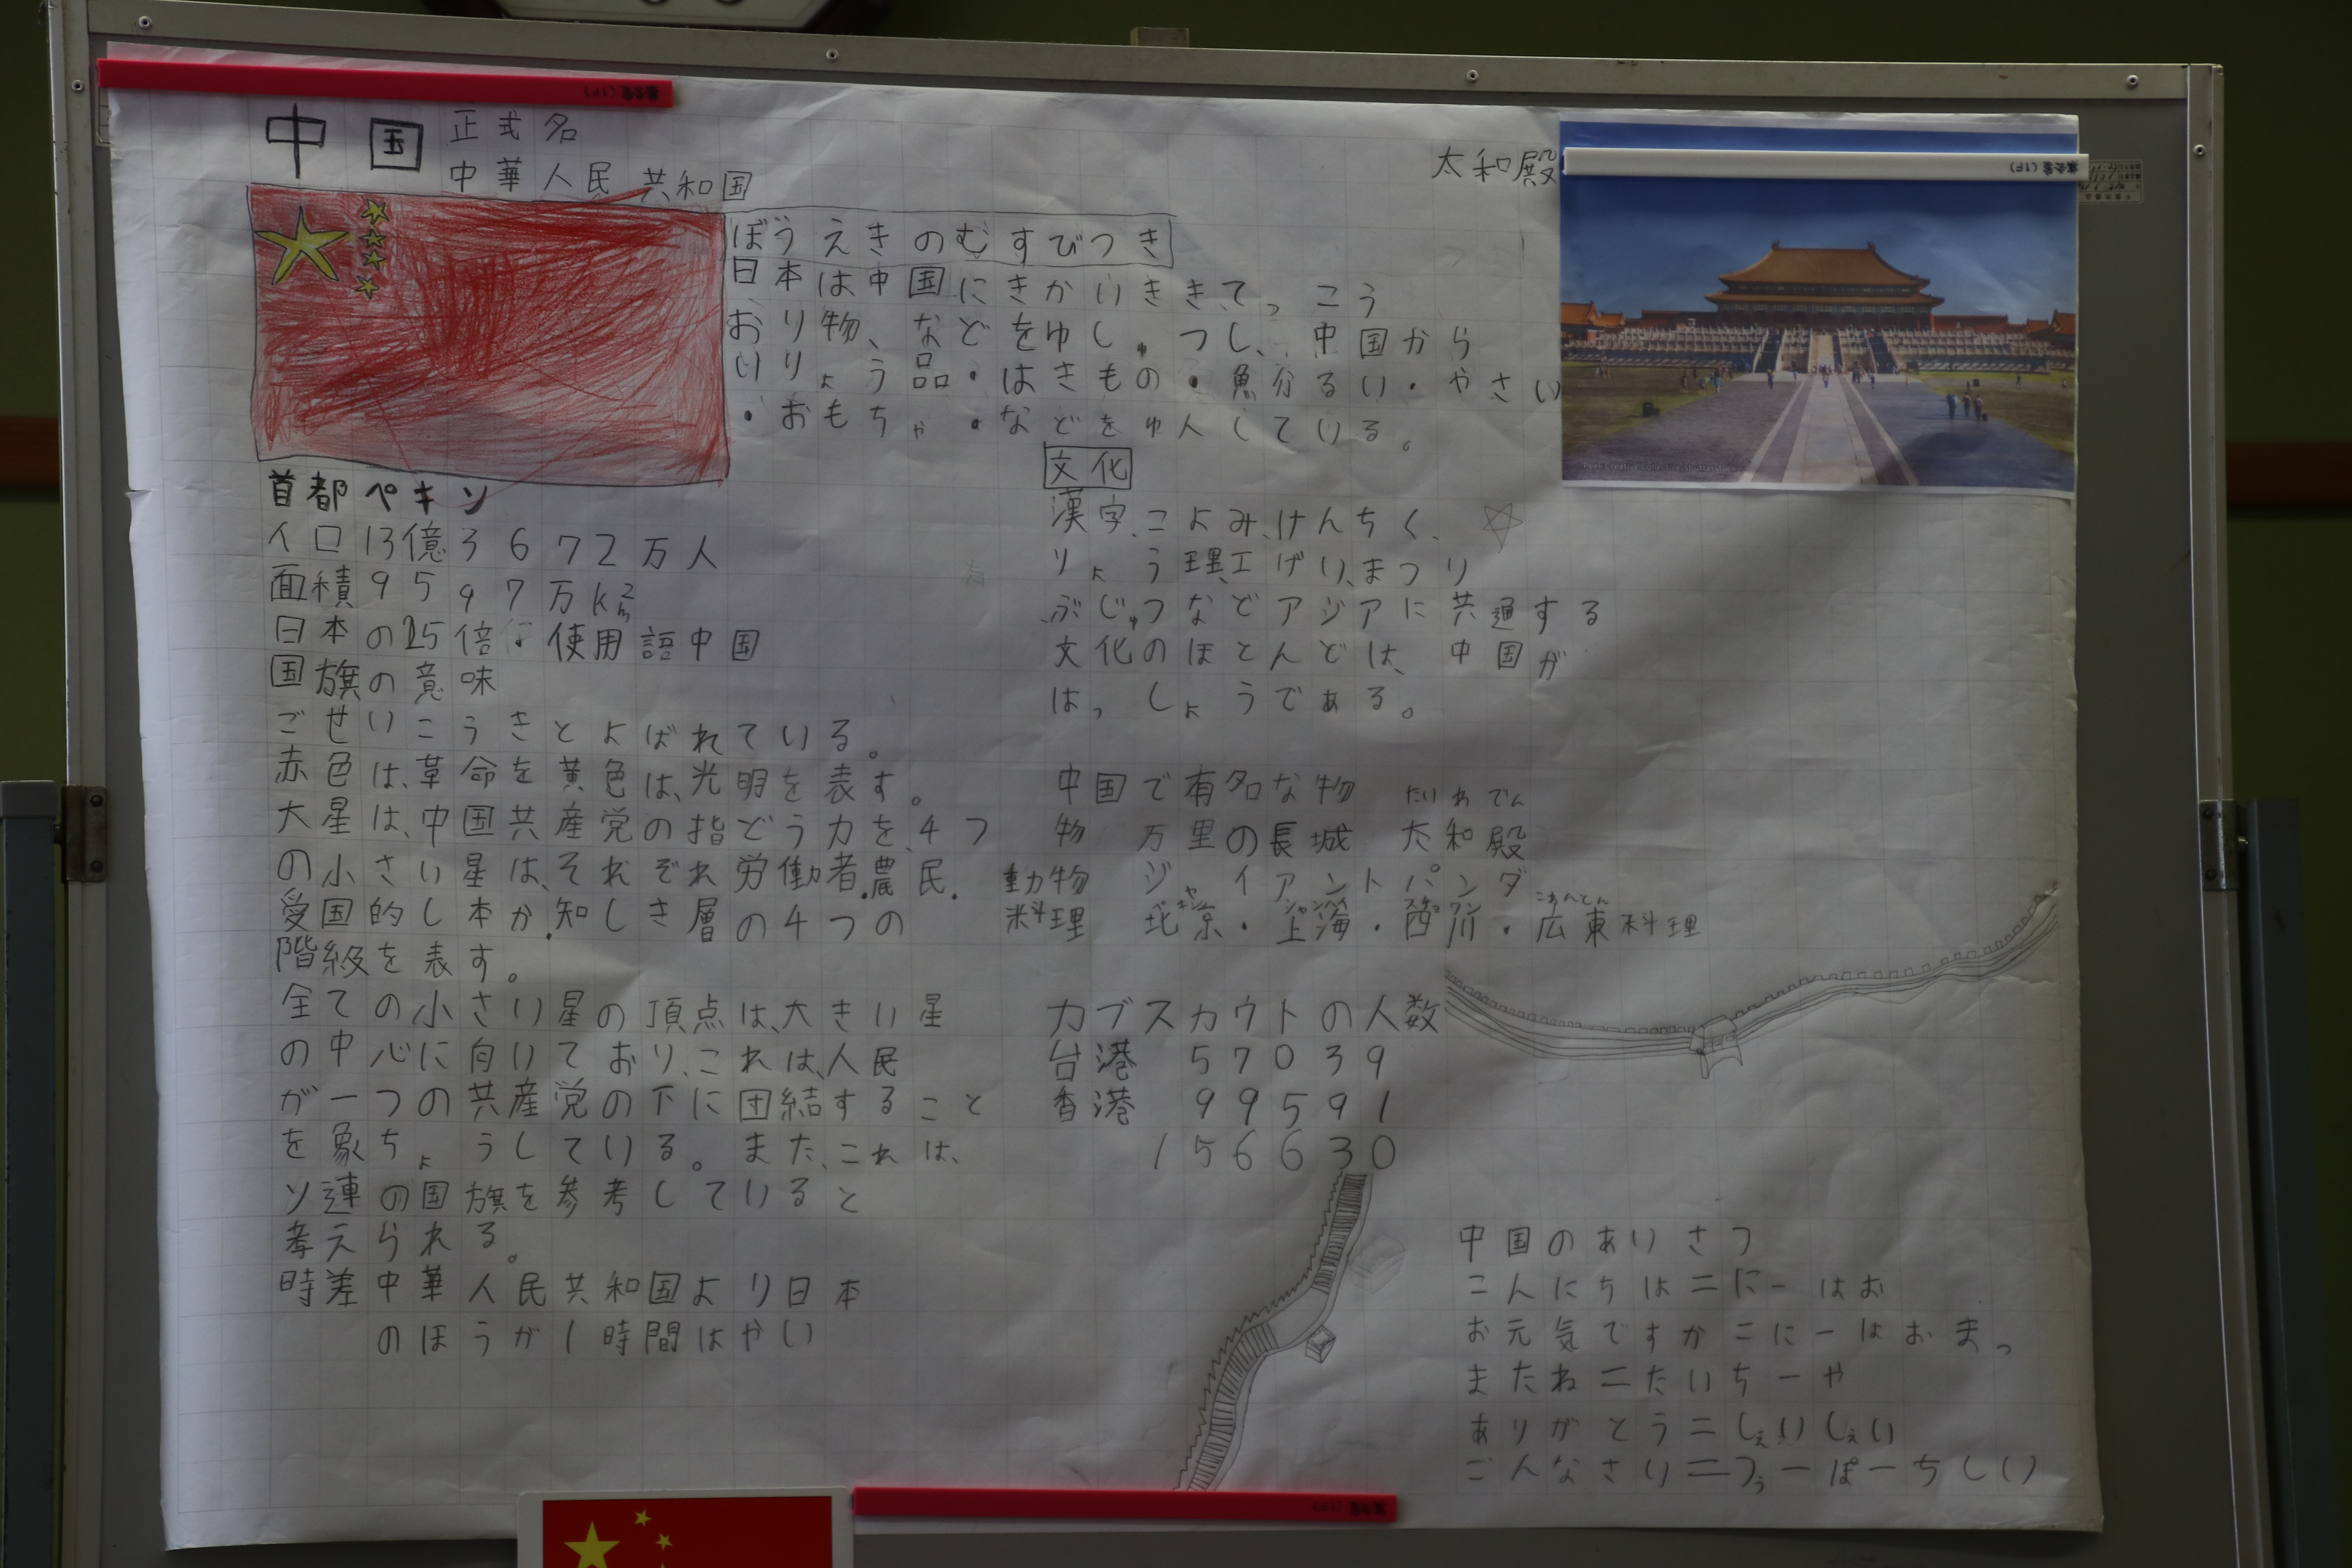 中国
正式名
中華人民共和国
太和殿
ぼうえきのむすびつき
日本は中国にきかいきき、てっこう
おり物、などをゆしゅつし、中国から
いりょう品・はきもの・魚分るい・やさい
・おもちゃ・などをゅ人している。
首都ペキン
人口13億3672万人
面積9597万km2
日本の25倍 使用語中国
国旗の意味
ごせいこうきとよばれている。
赤色は、革命を黄色は、光明を表す。
大星は、中国共産党の指どう力を、4つ
の小さい星は、それぞれ労働者.農民.
受国的し本か.知しき層の4つの
階級を表す。
全ての小さい星の頂点は、大きい星
の中心に向いており、これは、人民
が一つの共産党の下に団結すること
を象ちょうしている。また、これは、
ソ連の国旗を参考していると
考えられる。
時差中華人民共和国より日本
のほうが1時間はやい
文化
漢字、こよみ、けんちく、
りょう理、工げい、まつり
ぶじゅつなどアジアに共通する
文化のほとんどは、中国が
はっしょうである。
中国で有名な物
たいわでん
物 万里の長城 太和殿
動物 ジャイアントパンダ
料理 北京・上海・西川・広東料理
カブスカウトの人数
台港 57039
香港 99591
156630
中国のあいさつ
こんにちは=にーはお
お元気ですか=にーはおまっ
またね=たいちーや
ありがとう=しぇいしぇい
ごんなさい=つぅーぽーちしい